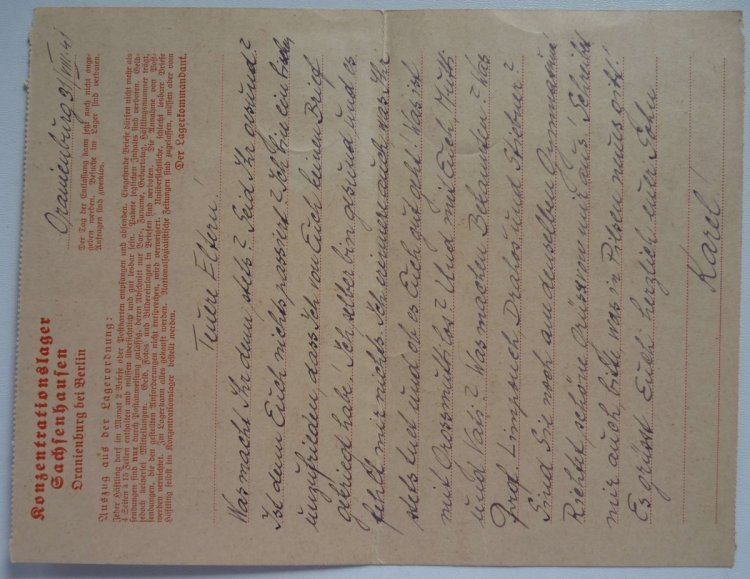 Konzentrationslager
Sachsenhausen
Oranienburg bei Berlin
Oranienburg 31/VIII. 41
Der Tag der Entlassung kann jetzt noch nicht ange-
geben werden. Besuche im Lager sind verboten.
Anfragen sind zwecklos.
Auszug aus der Lagerordnung:
Jeder Häftling darf im Monat 2 Briefe oder Postkarten empfangen und absenden. Eingehende Briefe dürfen nicht mehr als
4 Seiten à 15 Zeilen enthalten und müssen übersichtlich und gut lesbar sein. Pakete jeglichen Inhalts sind verboten. Geld-
sendungen sind nur durch Postanweisung zulässig, deren Abschnitt nur Vor-, Zuname, Geburtstag, Häftlingsnummer trägt,
jedoch keinerlei Mitteilungen. Geld, Fotos und Bildereinlagen in Briefen sind verboten. Die Annahme von Post-
sendungen, die den gestellten Anforderungen nicht entsprechen, wird verweigert. Unübersichtliche, schlecht lesbare Briefe
werden vernichtet. Im Lager kann alles gekauft werden. Nationalsozialistische Zeitungen sind zugelassen, müssen aber vom
Häftling selbst im Konzentrationslager bestellt werden.
Der Lagerkommandant.
Teuere Eltern!
Was macht Ihr denn stets? Seid Ihr gesund?
Ist dem Euch nichts passiert? Ich bin ein bischen
unzufrieden, dass Ich von Euch keinen Brief
gekriegt habe. Ich selber bin gesund und es
fehlt mir nichts. Ich erinnere auch was Ihr
stets tuet und ob es Euch gut geht. Was ist
mit Grossmutti los? Und mit Euch, Mutti
und Vati? Was machen Bekannten? Was
Prof. Limpouch, Drahos und Stiebner?
Sind Sie noch am denselben Gymnasium?
Richtet schöne Grüsse von mir aus! Schreibt
mir auch, bitte, was in Pilsen neues gibt!
Es grüsst Euch herzlich euer Sohn
Karel!